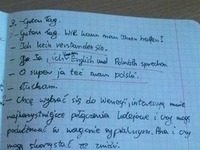 3. - Guten Tag.
- Guten Tag. Wie kann man Ihnen helfen?
- Ich kein verstanden sie.
- Ja ja, ich English und Polnisch sprechen
- O super ja też mam polski.
- Słucham.
- Chcę wybrać się do Wenecji, interesują mnie
najkorzystniejsze połączenia kolejowe i czy mogę
podróżować w wagonie sypialnym. Ale i czy
mogę skorzystać ze zniżki.